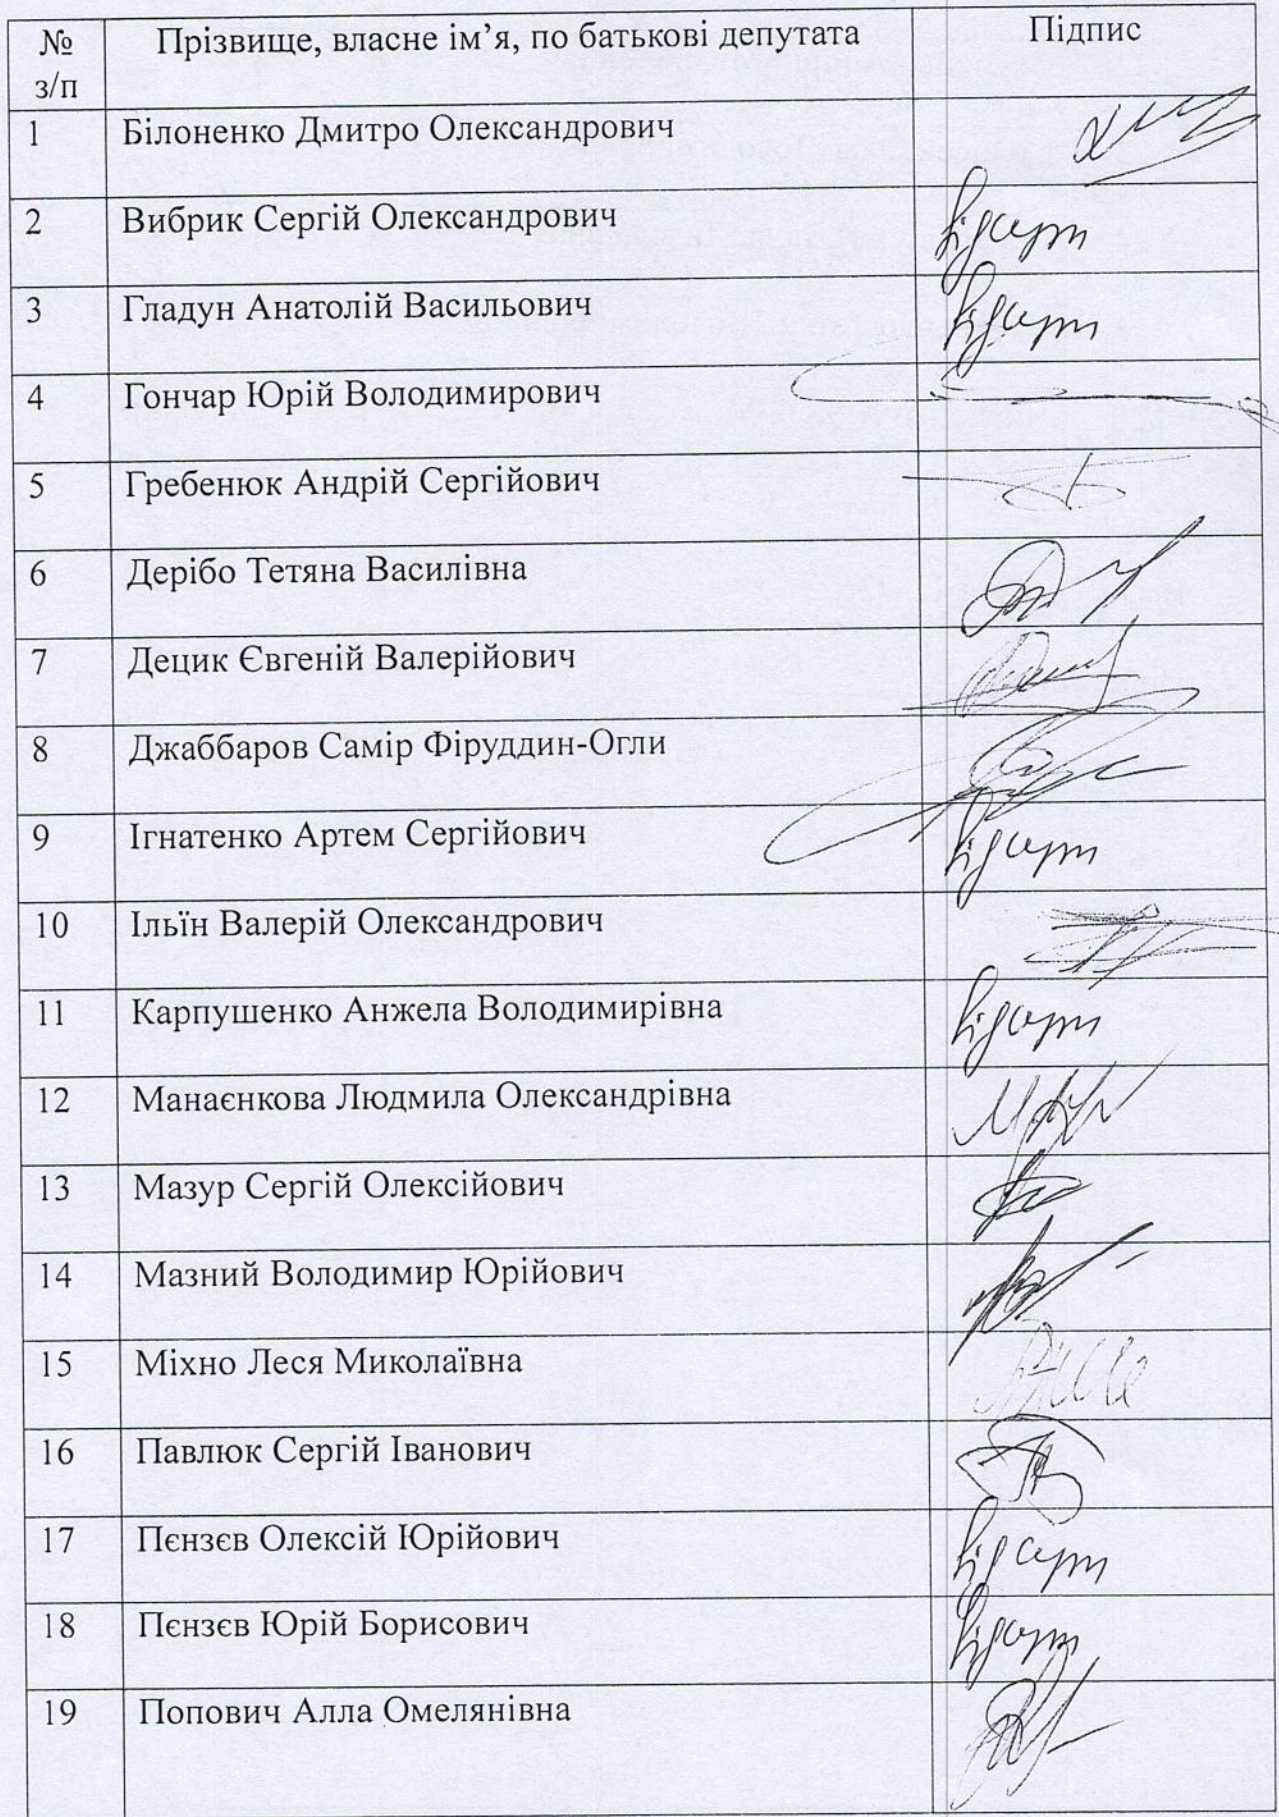 № з/п Прізвище, власне ім’я, по батькові депутата Підпис
1 Білоненко Дмитро Олександрович
2 Вибрик Сергій Олександрович
3 Гладун Анатолій Васильович
4 Гончар Юрій Володимирович
5 Гребенюк Андрій Сергійович
6 Дерібо Тетяна Василівна
7 Децик Євгеній Валерійович
8 Джаббаров Самір Фіруддин-Огли
9 Ігнатенко Артем Сергійович
10 Ільїн Валерій Олександрович
11 Карпушенко Анжела Володимирівна
12 Манаєнкова Людмила Олександрівна
13 Мазур Сергій Олексійович
14 Мазний Володимир Юрійович
15 Міхно Леся Миколаївна
16 Павлюк Сергій Іванович
17 Пєнзєв Олексій Юрійович
18 Пєнзєв Юрій Борисович
19 Попович Алла Омелянівна